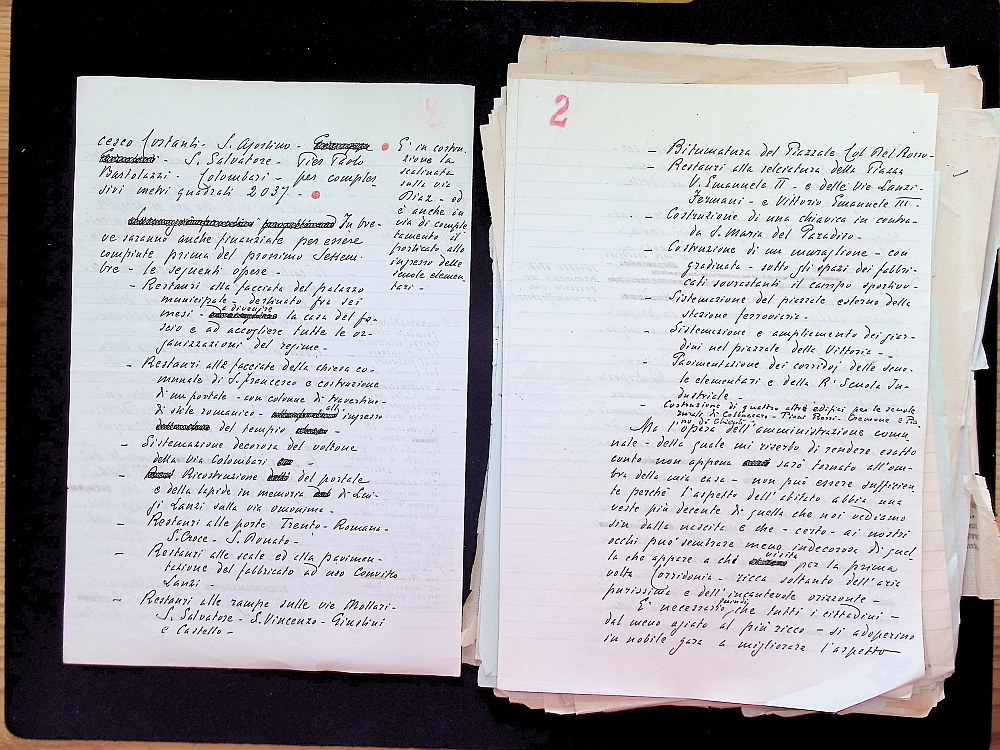 cesco Costanti - S. Agostino -
- S. Salvatore - Pier Paolo
Bartolazzi - Colombari - per comples-
sivi metri quadrati 2037 -
E' in costru-
zione la
scalinata
sulla via
Diaz - ed
è anche in
via di comple-
tamento il
porticato allo
ingresso delle
scuole elemen-
tari -
In bre-
ve saranno anche finanziate per essere
compiute prima del prossimo Settem-
bre - le seguenti opere -
- Restauri alla facciata del palazzo
municipale - destinato fra sei
mesi - a divenire la casa del fa-
scio e ad accogliere tutte le or-
ganizzazioni del regime -
- Restauri alla facciata della chiesa co-
munale di S. Francesco e costruzione
di un portale - con colonne di travertino -
di stile romanico - all' ingresso
del tempio -
- Sistemazione decorosa del voltone
della Via Colombari -
- Ricostruzione del portale
e della lapide in memoria di Lui-
gi Lanzi sulla via omonima -
- Restauri alle porte Trento - Romana -
S. Croce - S. Donato -
- Restauri alle scale ed alla pavimen-
tazione del fabbricato ad uso Convitto
Lanzi -
- Restauri alle rampe sulle vie Mollari -
S. Salvatore - S. Vincenzo - Giustini
e Castello -
2
- Bitumatura del Piazzale Col Del Rosso -
- Restauri alla selciatura della Piazza
V. Emanuele II - e delle Vie Lanzi -
Fermani - e Vittorio Emanuele III -
- Costruzione di una chiavica in contra-
da S. Maria del Paradiso -
- Costruzione di un muraglione - con
gradinata - sotto gli spazi dei fabbri-
cati sovrastanti il campo sportivo -
- Sistemazione del piazzale esterno della
stazione ferroviaria -
- Sistemazione e ampliamento dei giar-
dini nel piazzale della Vittoria -
- Pavimentazione dei corridoj delle scuo-
le elementari e della R. Scuola In-
dustriale -
- Costruzione di quattro altri edifici per le scuole
rurali di Colbuccaro - Piani Rossi - Cremone e Pia-
no di Chienti -
Ma l'opera dell'amministrazione comu-
nale - della quale mi riserbo di rendere esatto
conto non appena sarò tornato all'om-
bra della mia casa - non può essere sufficien-
te perché l'aspetto dell'abitato abbia una
veste più decente di quella che noi vediamo
sin dalla nascita e che - certo - ai nostri
occhi può sembrare meno indecorosa di quel
la che appare a chi visita per la prima
volta Corridonia - ricca soltanto dell'aria
purissima e dell'incantevole orizzonte -
E' necessario quindi che tutti i cittadini -
dal meno agiato al più ricco - si adoperino
in nobile gara a migliorare l'aspetto